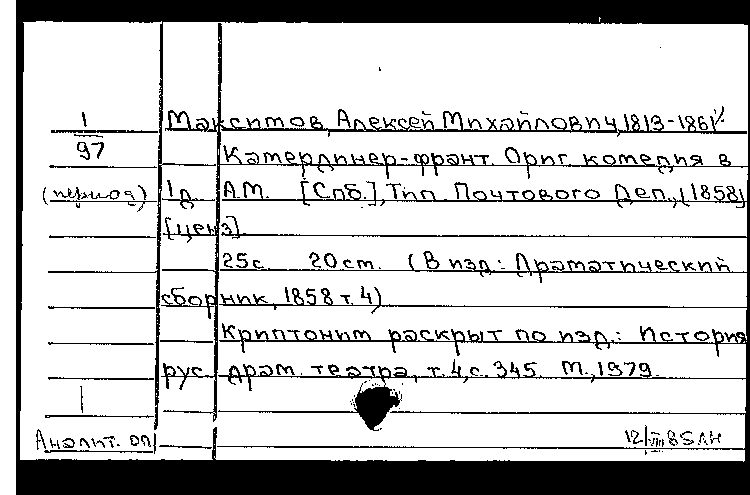 1
97
(период)
Максимов, Алексей Михайлович, 1813-1861.
Камердинер-франт. Ориг. комедия в
1 д. А.М. [Спб.], Тип. Почтового Деп., (1858)
[ценз].
25 с. 20 cm. (В изд.: Драматический
сборник, 1858 т. 4)
Криптоним раскрыт по изд.: История
рус. драм. театра, т. 4, с. 345. М., 1979.
1
Аналит. оп.
12/VIII 85 ЛН